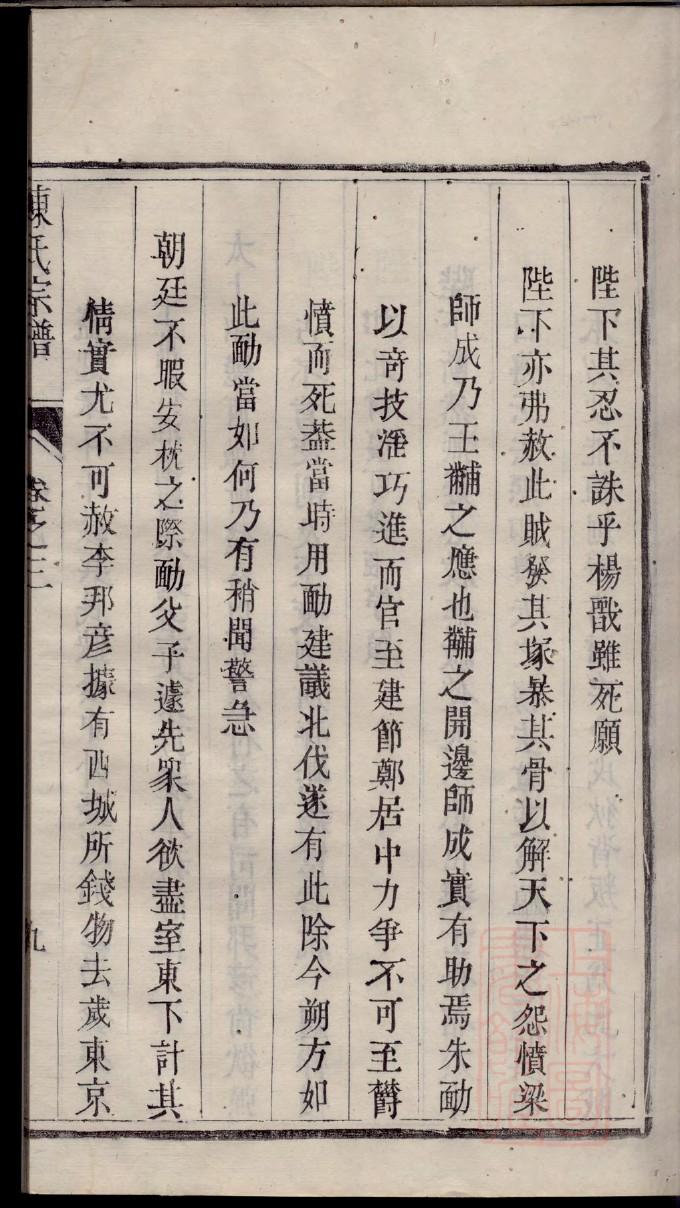 陛下其忍不誅乎楊戩雖死願
陛下亦弗赦此賊發其塚暴其骨以解天下之怨憤梁
師成乃王黼之應也黼之開邊師成實有助焉朱勔
以竒技淫巧進而官至建節鄭居中力爭不可至欝
憤而死葢當時用勔建議北伐遂有此除今朔方如
此勔當如何乃有稍聞警急
朝廷不暇安枕之際勔父子遽先衆人欲盡室東下計其
情實尤不可赦李邦彦據有西城所錢物去歲東京
陳氏宗譜
卷之三
九